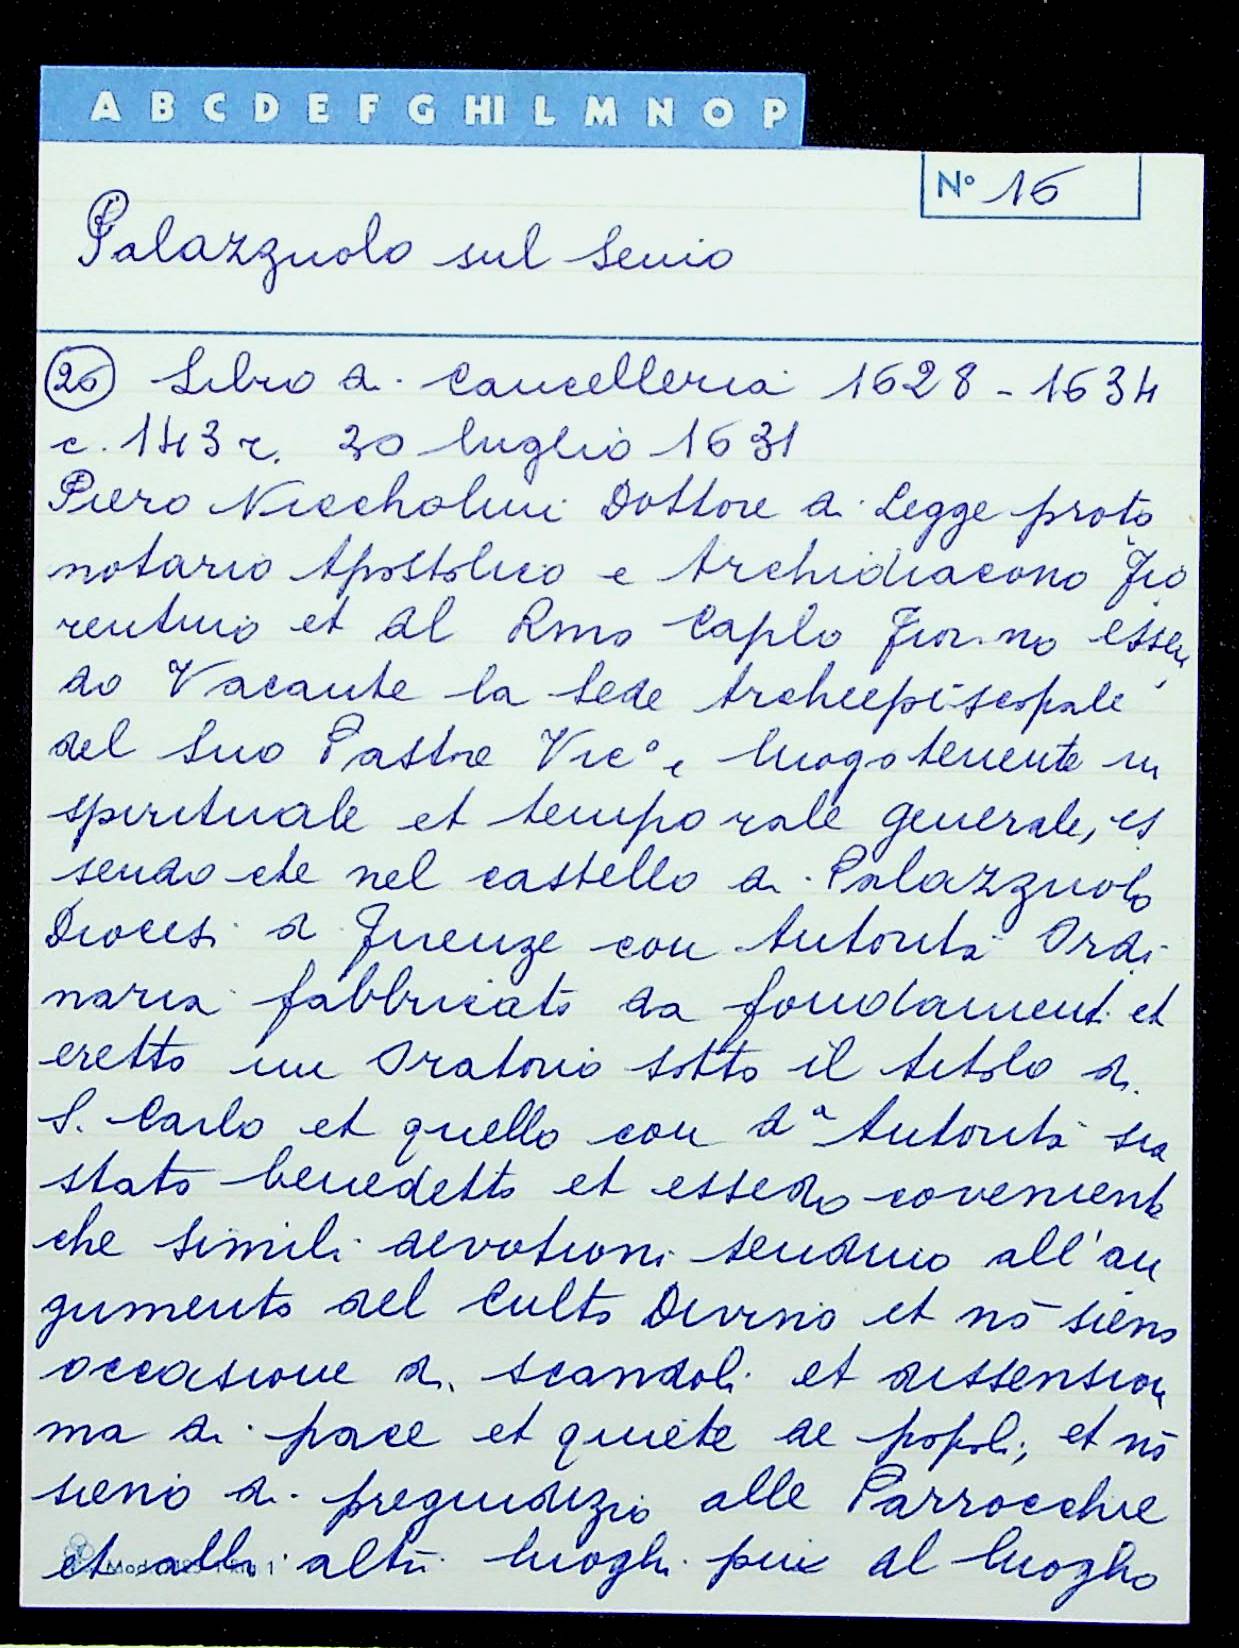 A B C D E F G HI L M N O P
N° 16
Palazzuolo sul Senio
26 Libro di Cancelleria 1628 - 1634
c. 143 r. 20 luglio 1631
Piero Niccholini Dottore di Legge proto
notario Apostolico e Archidiacono Fio
rentino et al Rmo Caplo Fior.no essen
do Vacante la Sede Archiepiscopale
del suo Pastore Vic° e luogotenente in
spirituale et temporale generale, es
sendo che nel castello di Palazzuolo
Diocesi di Firenze con Autorità Ordi
naria fabbricato da fondamenti et
eretto un Oratorio sotto il titolo di
S. Carlo et quello con d.ª Autorità sia
stato benedetto et essedo coveniente
che simili devotioni tendino all'au
gumento del Culto Divino et nō sieno
occasione di scandoli et dissension
ma di pace et quiete de popoli, et nō
sieno di pregiudizio alle Parrocchie
et alli altri luoghi pii al luogho